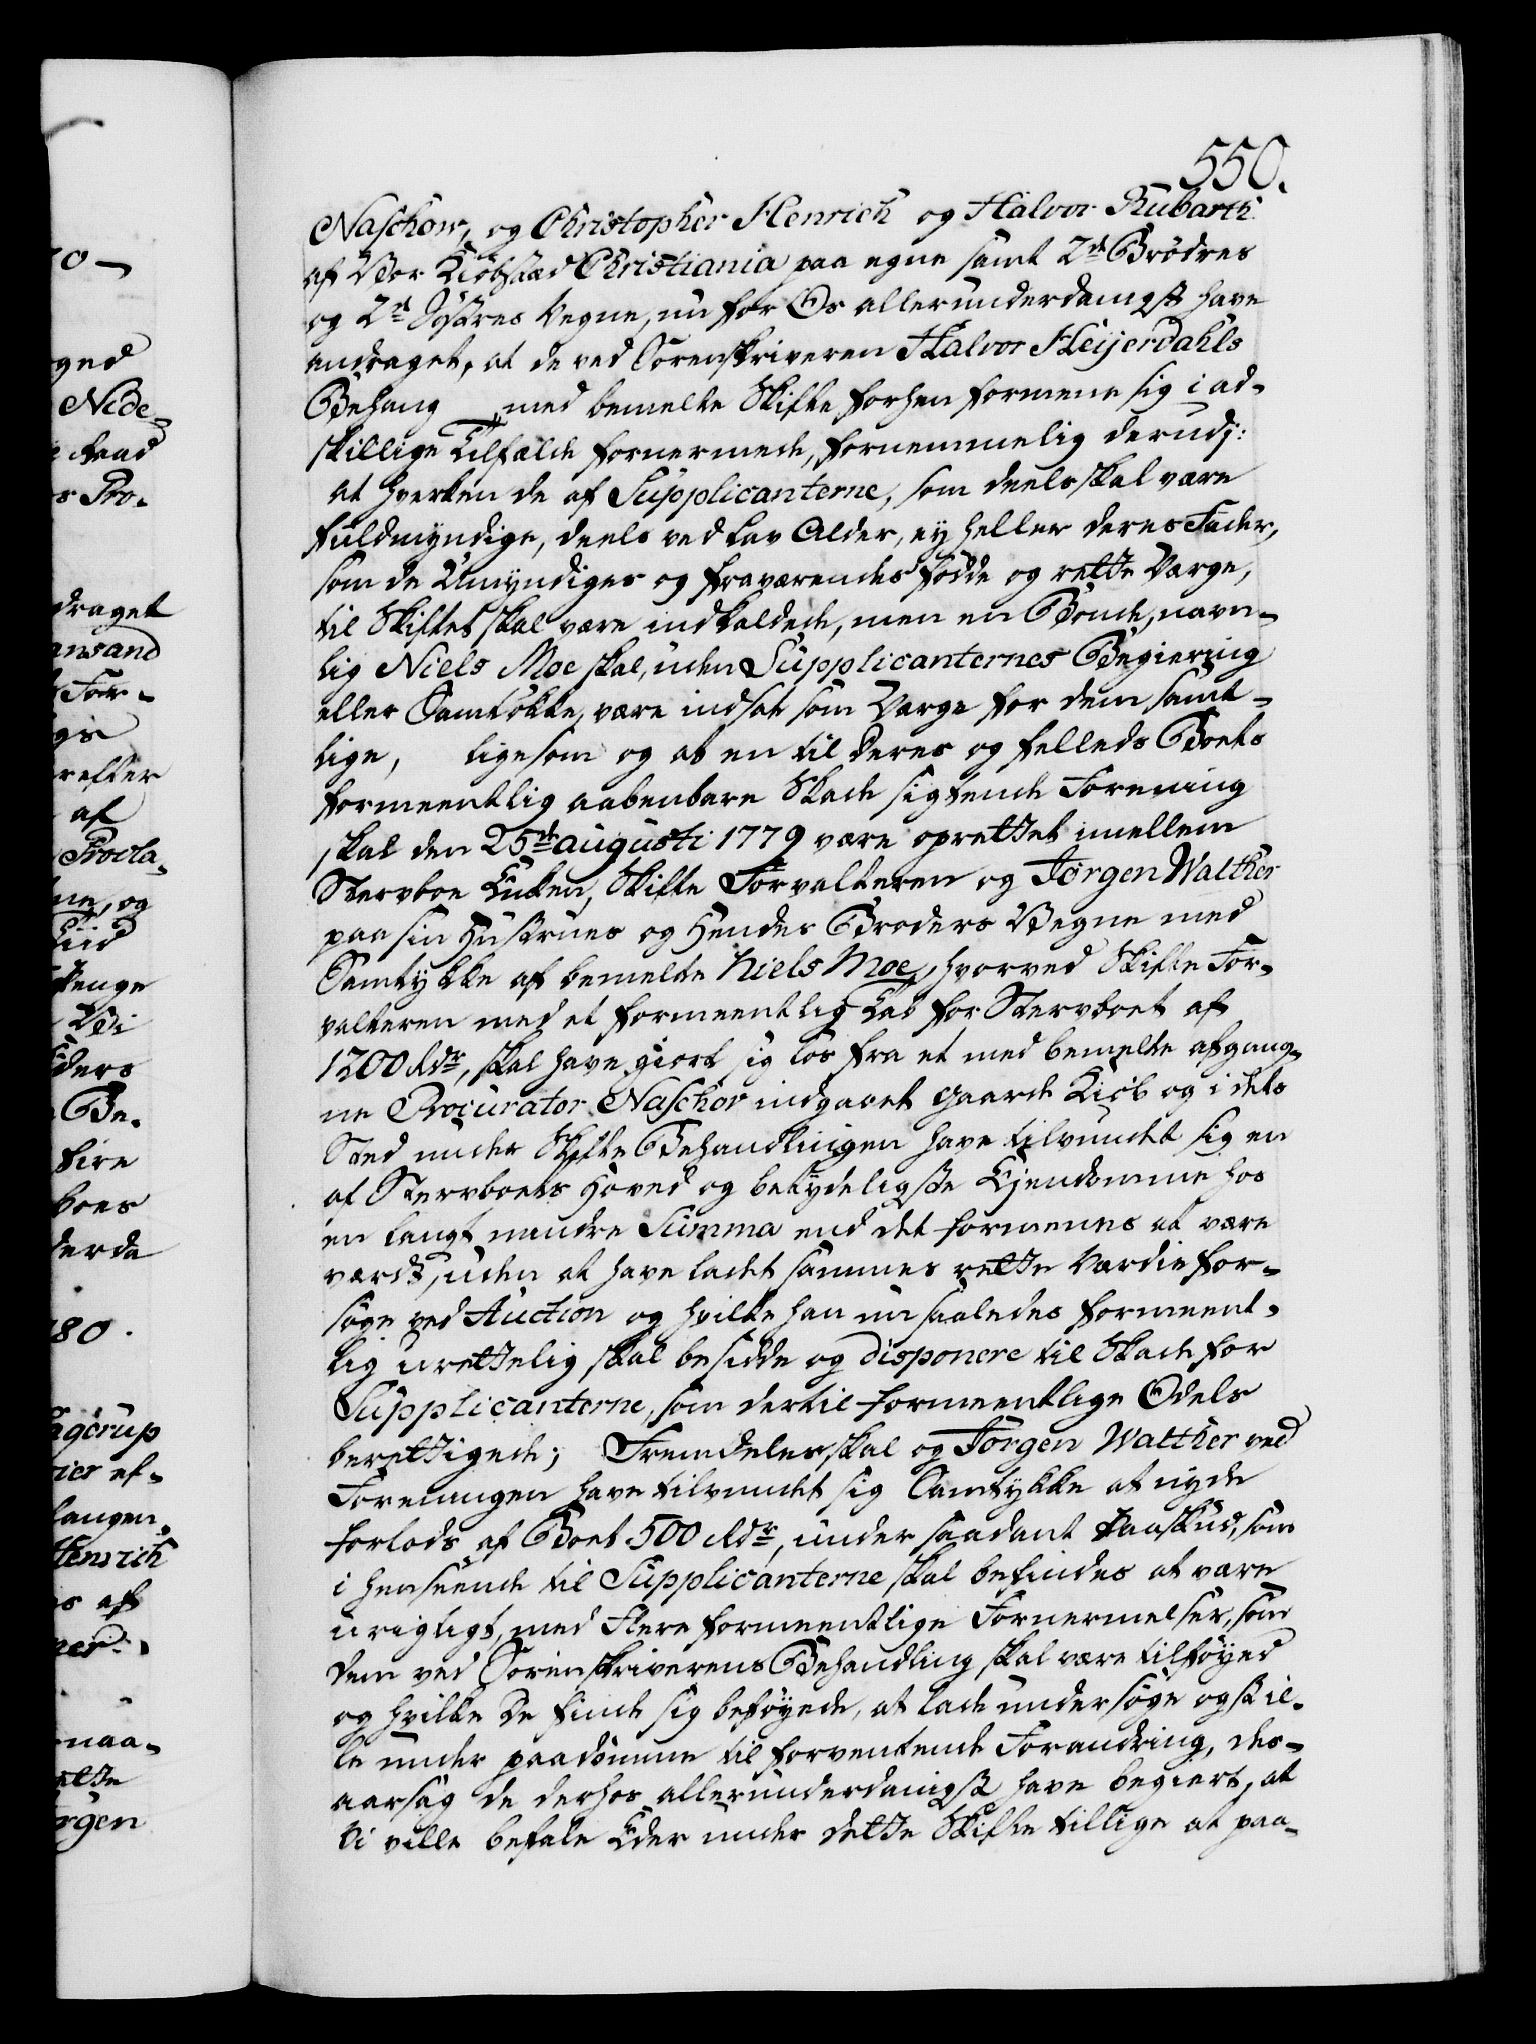 550.
Naschow, og Christopher Henrich og Halvor Rubarth
af Vor Kiöbstæd Christiania paa egne samt 2de Brödres
og 2de Söstres Vegne, nu for Os allerunderdanigst have
andraget, at de ved Sorenskriveren Halvor Heijerdahls
Behang med bemelte Skifte forhen formene sig i ad-
skillige Tilfælde fornermede, fornemmelig derudj:
at hverken de af Supplicanterne, som deels skal være
fuldmyndige, deels ved Lav Alder, ey heller deres Fader,
som de Umyndiges og fraværendes födde og rette Værge,
til Skiftet skal være indkaldede, men en Bonde, navn-
lig Niels Moe skal, uden Supplicanternes Begiering
eller Samtökke, være indsat som Værge for dem samt-
lige, ligesom og at en til deres og felleds Boets
formeentlig aabenbare Skade sigtende Forening
skal den 25de augusti 1779 være oprettet imellem
Stervboe Enken, Skifte Forvalteren og Jörgen Walther
paa sin Hustrues og Hendes Broders Vegne med
Samtykke af bemelte Niels Moe, hvorved Skifte For-
valteren med et formeentlig Tab for Stervboet af
1200 Rdr, skal have giort sig los fra et med bemelte afgang-
ne Procurator Naschov indgaaet Gaarde Kiöb og i dets
Sted under Skifte Behandlingen have tilvendt sig en
af Stervboets Hoved og betydeligste Ejendomme hos
en langt mindre Summa end det formenes at være
værdt, uden at have ladet sammes rette Værdie for-
söge ved Auction og hvilke han nu saaledes formeent-
lig urettelig skal besidde og disponere til Skade for
Supplicanterne, som dertil formeentlige Odels
berettigede; Fremdeles skal og Jörgen Walther ved
Foreningen have tilvendt sig Samtykke at nyde
forlods af Boet 500 Rdr, under saadant Paaskud, som
i henseende til Supplicanterne skal befindes at være
urigtigt, med flere formeentlige Fornermelser, som
dem ved Sorenskriverens Behandling skal være tilföyed
og hvilke De finde sig beföyede, at lade undersöge og stil-
le under paadömme til forventende Forandring, des-
aarsag de derhos allerunderdanigst have begiert, at
Vi ville befale Eder under dette Skifte tillige at paa-